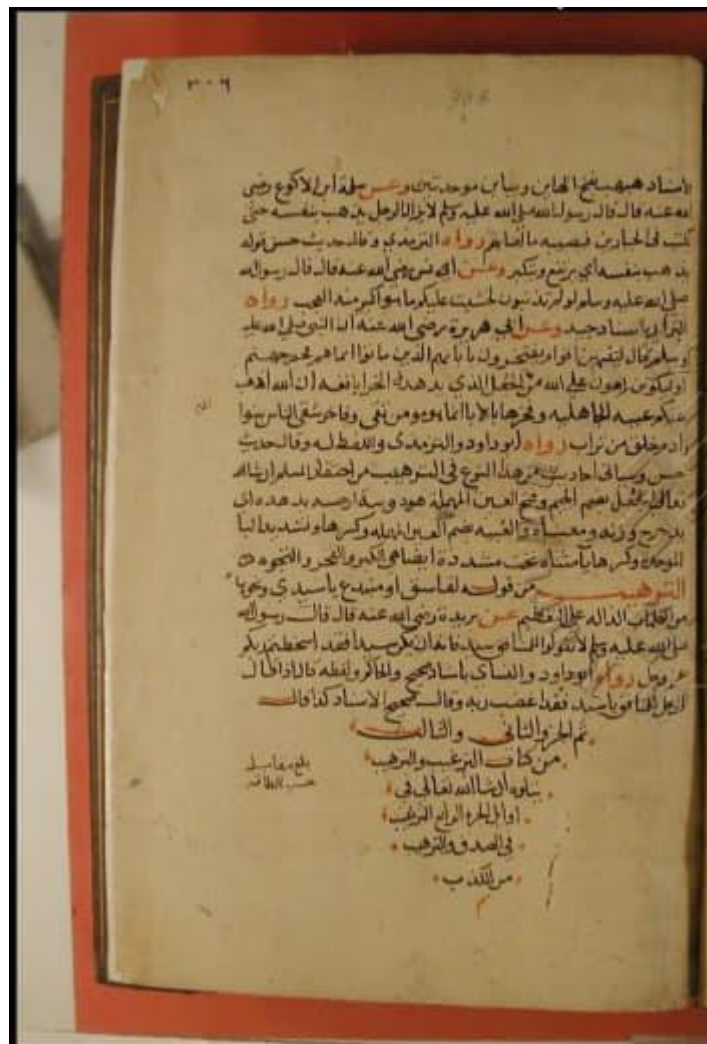 ٣٠٦
306
الاسناد هبهب بفتح الهاين وبباين موحدتين وعن سلمة ابن الاكوع رضى
الله عنه قال قال رسول الله صلى الله عليه وسلم لا يزال الرجل يذهب بنفسه حتى
يكتب فى الجبارين فيصيبه ما اصابهم رواه الترمذي وقال حديث حسن قوله
يذهب بنفسه اي يرتفع ويتكبر وعن انس رضى الله عنه قال قال رسول الله
صلى الله عليه وسلم لو لم تذنبون لخشيت عليكم ما هو اكبر منه العجب رواه
البزار باسناد جيد وعن ابي هريرة رضى الله عنه ان النبي صلى الله عليه
وسلم قال لينتهين اقوام يفتخرون بابايهم الذين ماتوا انما هم فحم جهنم
او ليكونن اهون على الله من الجعل الذي يدهده الخرا بانفه ان الله اذهب
عنكم عبية الجاهلية وفخرها بالابا انما هو مومن تقى وفاجر شقى الناس بنوا
ادم وادم خلق من تراب رواه ابو داود والترمذى واللفظ له وقال حديث
حسن وستاتى احاديث من هذا النوع فى الترهيب من احتقار المسلم ان شا الله
تعالى الجعل بضم الجيم وفتح العين المهملة هو دويبة ارضية يدهده اى
يدحرج وزنه ومعناه والعبية بضم العين المهملة وكسرها وتشديد البا
الموحدة وكسرها يا مثناة تحت مشددة ايضا هى الكبر والفخر والنخوة
الترهيب من قوله لفاسق او مبتدع ياسيدي ونحوها
من الكلمات الدالة على التعظيم عن بريدة رضى الله عنه قال قال رسول الله
صلى الله عليه وسلم لا تقولوا للمنافق سيد فانه ان يكن سيدا فقد اسخطتم ربكم
عز وجل رواه ابو داود والنساى باسناد صحيح والحاكم ولفظه قال اذا قال
الرجل للمنافق ياسيد فقد اغضب ربه وقال صحيح الاسناد كذا قال
تم الجزو الثانى والثالث
من كتاب الترغيب والترهيب
يتلوه ان شا الله تعالى فى
اوايل الجزء الرابع الترغيب
فى الصدق والترهيب
من الكذب
م
بلغ مقابلة
حسب الطاقة